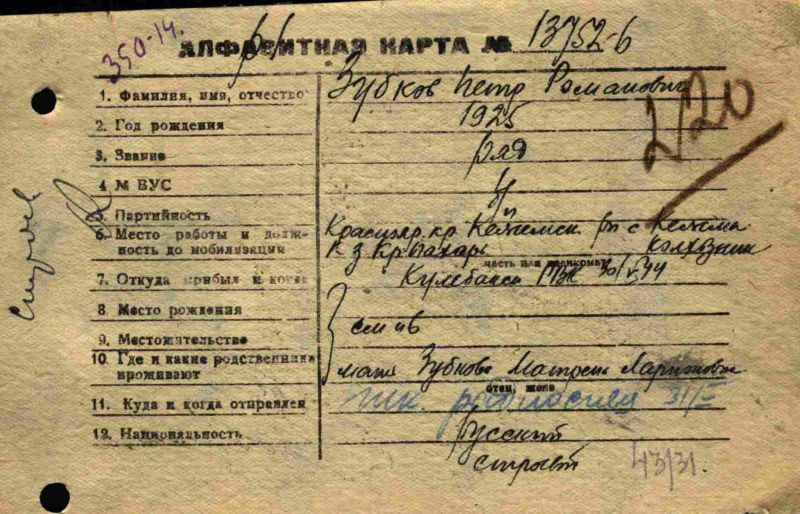 350-14.
б/1
АЛФАВИТНАЯ КАРТА № 13752-б
1. Фамилия, имя, отчество Зубков Петр Романович
220
2. Год рождения 1925
3. Звание ряд
4. № ВУС
5. Партийность б/п
6. Место работы и долж- Краснояр. кр. Кежемск рн с Кежма
ность до мобилизации к-з Кр Пахарь колхозник
часть или военкомат
7. Откуда прибыл и когда Кулебакск РВК 30/V 44
8. Место рождения
9. Местожительство см п 6
10. Где и какие родственники
проживают мать Зубкова Матрена Ларионовна
отец, жена
11. Куда и когда отправлен 31/V
12. Национальность Русский
строев
43/31.